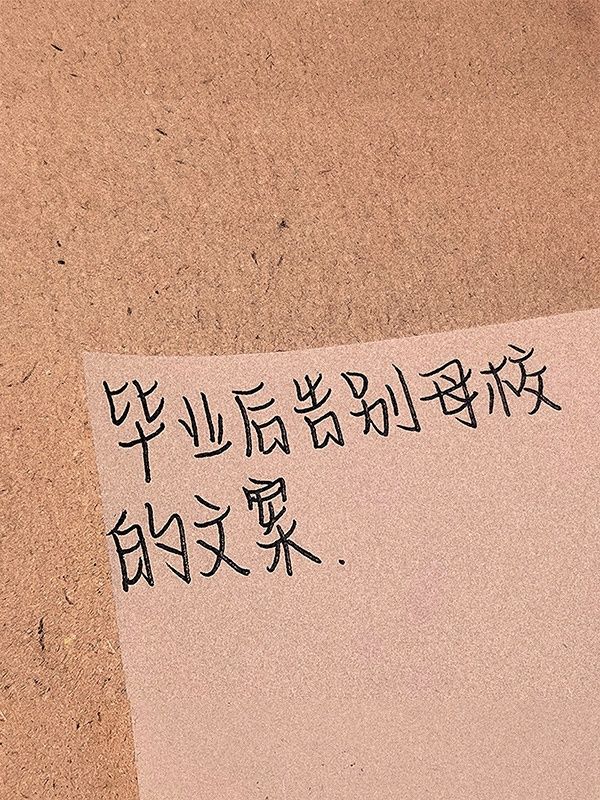 毕业后告别母校
的文案.